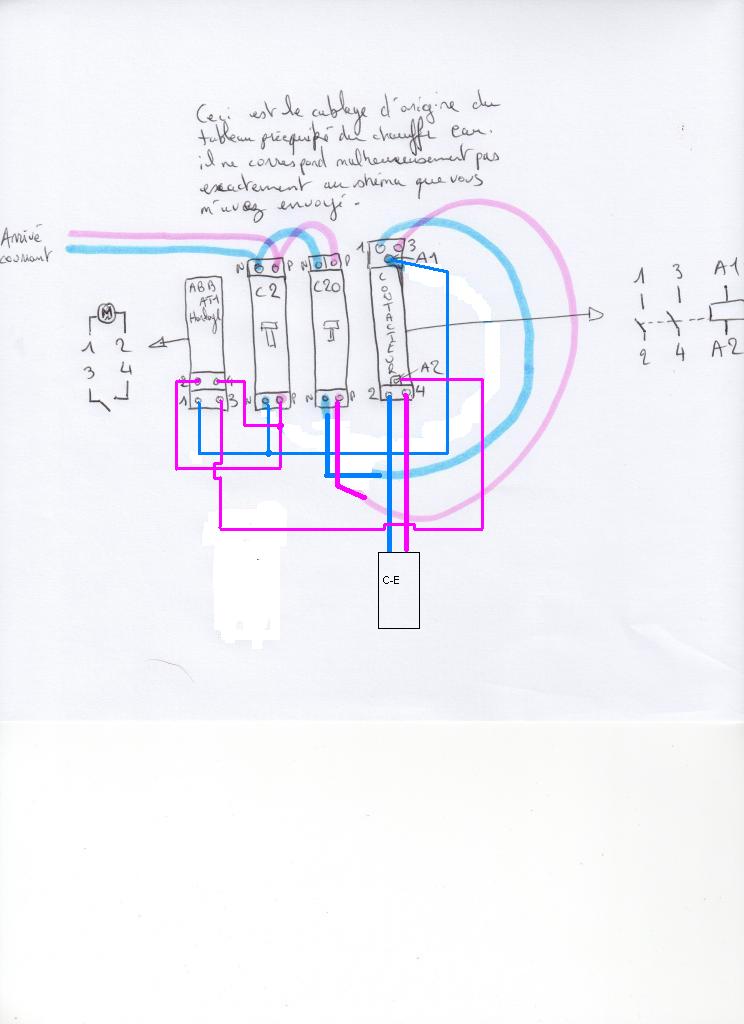 Ceci est le cablage d'origine du
tableau préequipé du chauffe eau.
il ne correspond malheureusement pas
exactement au shéma que vous
m'avez envoyé.
Arrivé
courant
N P N P 1 3
A1
ABB
AT1
Horloge
C2
C20
CONTACTEUR
M
1 2
3 4
1 3 A1
2 4 A2
A2
2 4
1 3
N P N P 2 4
C-E